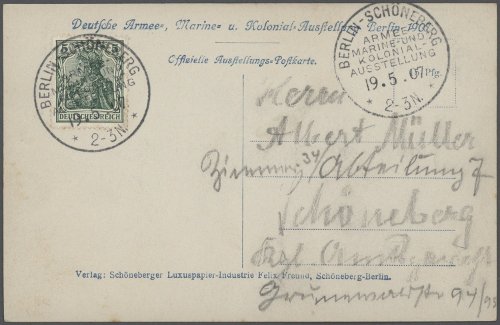 Deutsche Armee-, Marine- u. Kolonial-Ausstellung Berlin 1907
Offizielle Ausstellungs-Postkarte.
BERLIN-SCHÖNEBERG
ARMEE-
MARINE-UND
KOLONIAL-
AUSSTELLUNG
19.5.07
* 2-3N. *
Pfg.
5
BERLIN-SCHÖNEBERG
DEUTSCHES REICH
19.5.
* 2-3N. *
Herrn
Albert Müller
Zimmer 34/Abteilung 7
Schöneberg
Kgl. Amtsgericht
Grunewaldstr 94/95
Verlag: Schöneberger Luxuspapier-Industrie Felix Freund, Schöneberg-Berlin.